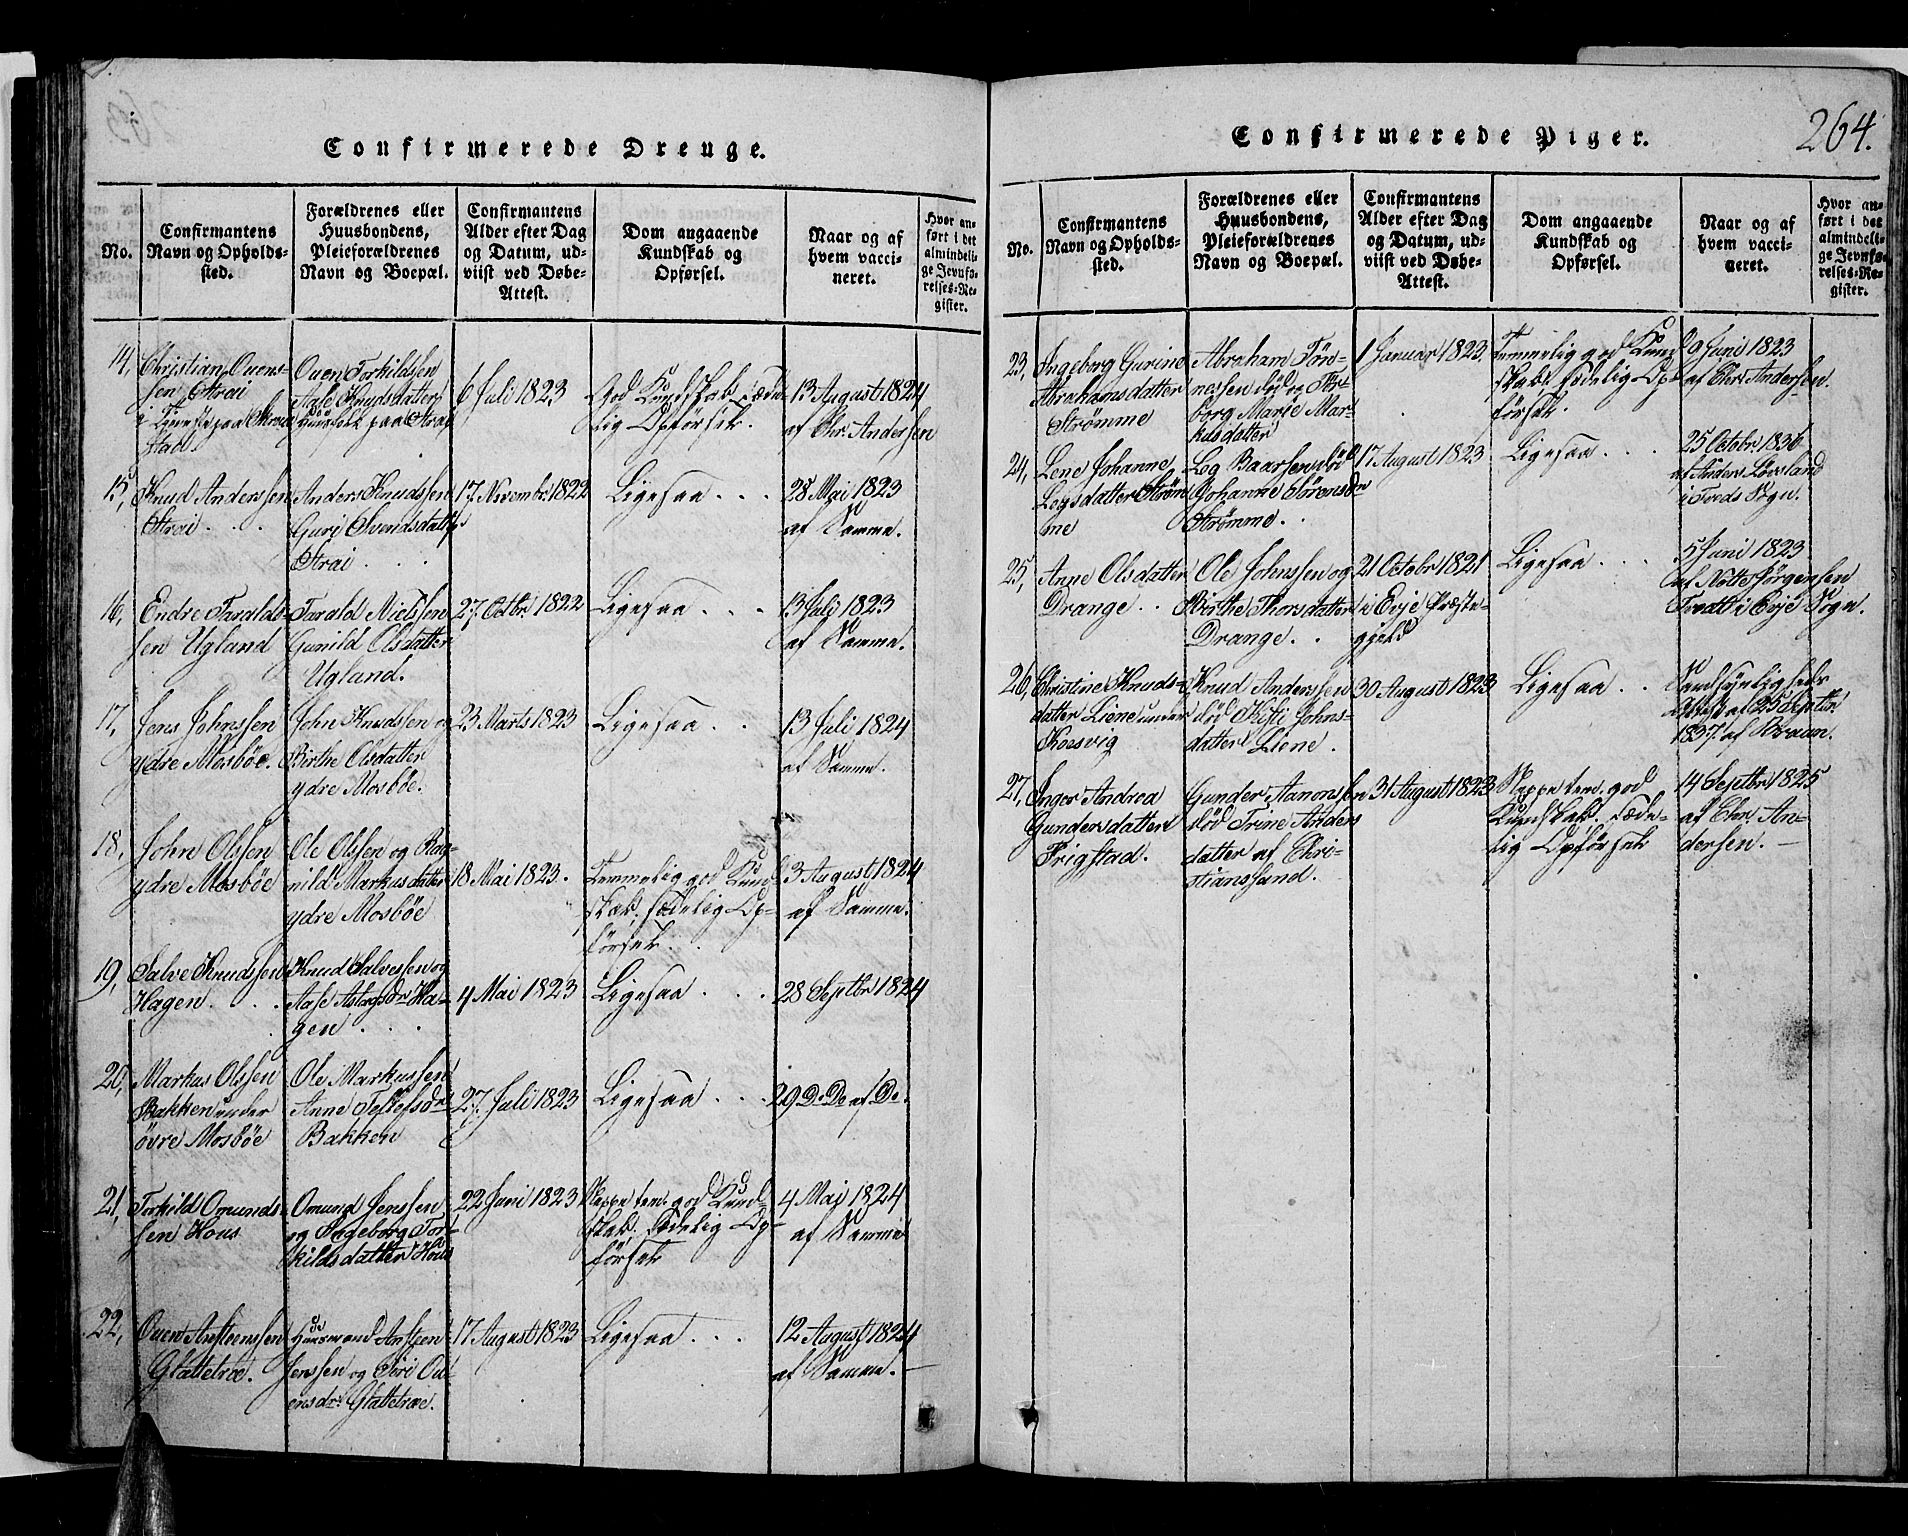 Confirmerede Drenge.
No.
Confirmantens
Navn og Opholds-
sted.
Forældrenes eller
Huusbondens,
Pleieforældrenes
Navn og Boepæl.
Confirmantens
Alder efter Dag
og Datum, ud-
viist ved Døbe-
Attest.
Dom angaaende
Kundskab og
Opførsel.
Naar og af
hvem vacci-
neret.
Hvor an-
ført i det
almindeli-
ge Jevnfø-
relses-Re-
gister.
14,
Christian Ouens-
sen Strai
i Tjeneste paa
stad.
Ouen Torkildsen
Aase Knudsdatter
Huusfolk paa Strai
6 Juli 1823
God Kundskab, sæde-
lig Opförsel.
13 August 1824
af Chr. Andersen
15,
Knud Anderssen
Strai . . .
Anders Knudssen
Guri Svendsdatter
Strai . . .
17 Novembr 1822
Ligesaa . . .
28 Mai 1823
af Samme.
16,
Endre Taralds-
sen Ugland
Tarald Nielssen
Gunild Olsdatter
Ugland.
27 Octbr 1822
Ligesaa . . .
13 Juli 1823
af Samme.
17,
Jens Johnssen
ydre Mosböe.
John Knudssen og
Birthe Olsdatter
ydre Mosböe.
23 Marts 1823
Ligesaa . .
13 Juli 1824
af Samme.
18,
John Olssen
ydre Mosböe
Ole Olssen og Rag-
nild Markusdatter
ydre Mosböe
18 Mai 1823.
Temmelig god Kund-
skab, sædelig Op-
försel. .
3 August 1824
af Samme.
19,
Salve Knudssen
Hagen. . . .
Knud Salvessen og
Aase Aslagsdr Ha-
gen . . .
4 Mai 1823
Ligesaa . . .
28 Septbr 1824
20,
Markus Olssen
Bakken under
övre Mosböe
Ole Markussen
Anne Tellefsdr
Bakken
27 Juli 1823
Ligesaa . . .
29 Do Do af Do.
21,
Torkild Omunds-
sen Hous
Omund Jenssen
og Ingeborg Tor-
kildsdatter Hous
22 Juni 1823
Neppe tem. god Kund
skab, sædelig Op-
försel
4 Mai 1824
af Samme
22,
Ouen Anstenssen
Glattetræ.
Huusmand Ansten
Jenssen og Siri Ou-
ensdr. Glattetræ.
17 August 1823
Ligesaa . . .
12 August 1824
af Samme.
Confirmerede Piger.
264.
No.
Confirmantens
Navn og Opholds-
sted.
Forældrenes eller
Huusbondens,
Pleieforældrenes
Navn og Boepæl.
Confirmantens
Alder efter Dag
og Datum, ud-
viist ved Døbe-
Attest.
Dom angaaende
Kundskab og
Opførsel.
Naar og af
hvem vacci-
neret.
Hvor an-
ført i det
almindeli-
ge Jevnfø-
relses-Re-
gister.
23,
Ingeborg Gurine
Abrahamsdatter
Strömme
Abraham Tön-
nessen död og Tor-
borg Marie Mar-
kusdatter
1 Januar 1823
Temmelig god Kund
skab, sædelig Op-
försel.
9 Juni 1823
af Chr. Andersen.
24,
Lene Johanne
Legsdatter Ström
me
Leg Baarsen död
Johanne Sörensdr
Strömme. .
17 August 1823
Ligesaa . . .
25 Octobr. 1836
af Anders Lövsland
i Tveds Sogn.
25,
Anne Olsdatter
Drange . .
Ole Johnssen og
Birthe Thorsdatter
Drange. .
21 Octobr 1821
i Evje Præste-
gjeld
Ligesaa . . .
5 Juni 1823
af Notte Jörgensen
Tvedt i Evje Sogn.
26,
Christine Knuds-
datter Liene under
Kosvig
Knud Anderssen
död Kisti Johns-
datter Liene.
30 August 1823
Ligesaa . .
af 25 Septbr
1837 af Braun.
27,
Inger Andrea
Gundersdatter
Frigstad.
Gunder Aanonsen
död Trine Anders
datter af Chri-
stianssand.
31 August 1823
Neppe tem. god
Kundskab. sæde-
lig Opförsel
14 Septbr 1825
af Chr. An-
dersen. —